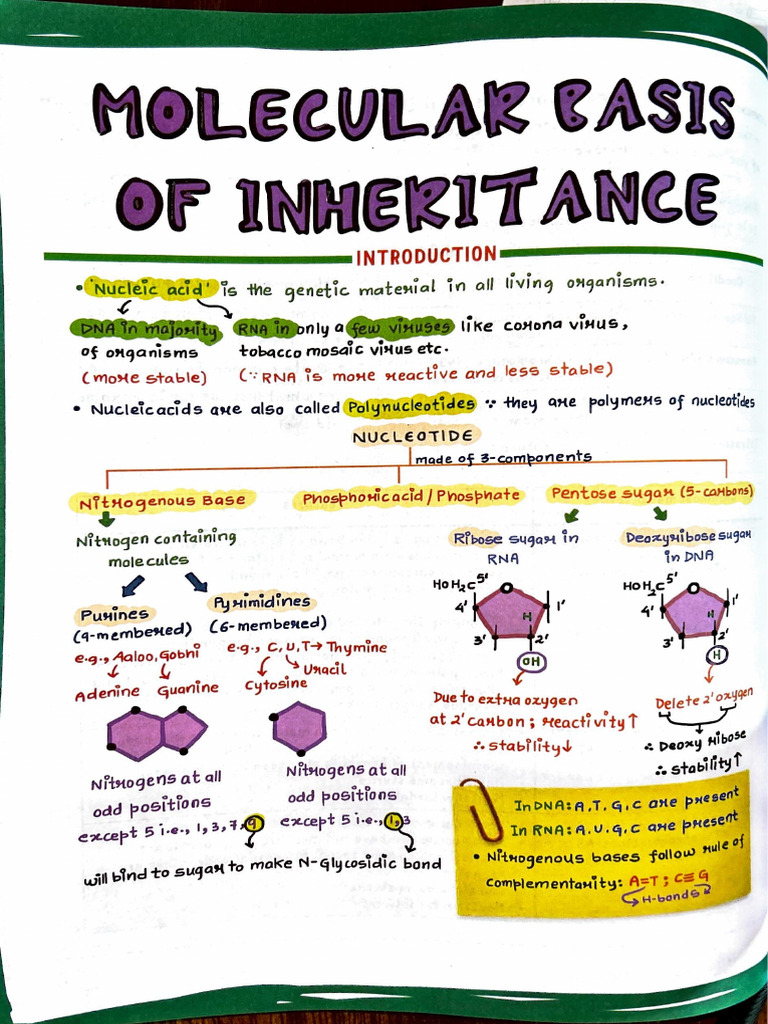 MOLECULAR BASIS
OF INHERITANCE
INTRODUCTION
• 'Nucleic acid' is the genetic material in all living organisms.
DNA in majority RNA in only a few viruses like corona virus,
of organisms tobacco mosaic virus etc.
(more stable) (∵ RNA is more reactive and less stable)
• Nucleic acids are also called Polynucleotides ∵ they are polymers of nucleotides
NUCLEOTIDE
made of 3-components
Nitrogenous Base Phosphoric acid / Phosphate Pentose sugar (5-carbons)
Nitrogen containing
molecules
Ribose sugar in
RNA
Deoxyribose sugar
in DNA
Purines
(9-membered)
e.g., Aaloo, Gobhi
Adenine Guanine
Pyrimidines
(6-membered)
e.g., C, U, T→ Thymine
Uracil
Cytosine
HOH₂C 5' O
4' 1'
H
3' 2'
OH
HOH₂C 5' O
4' 1'
H
3' 2'
H
Due to extra oxygen
at 2' carbon ; reactivity ↑
∴ stability ↓
Delete 2' oxygen
∴ Deoxy ribose
∴ stability ↑
Nitrogens at all
odd positions
except 5 i.e., 1, 3, 7, 9
Nitrogens at all
odd positions
except 5 i.e., 1, 3
will bind to sugar to make N-Glycosidic bond
In DNA: A, T, G, C are present
In RNA: A, U, G, C are present
• Nitrogenous bases follow rule of
complementarity: A=T ; C≡G
H-bonds